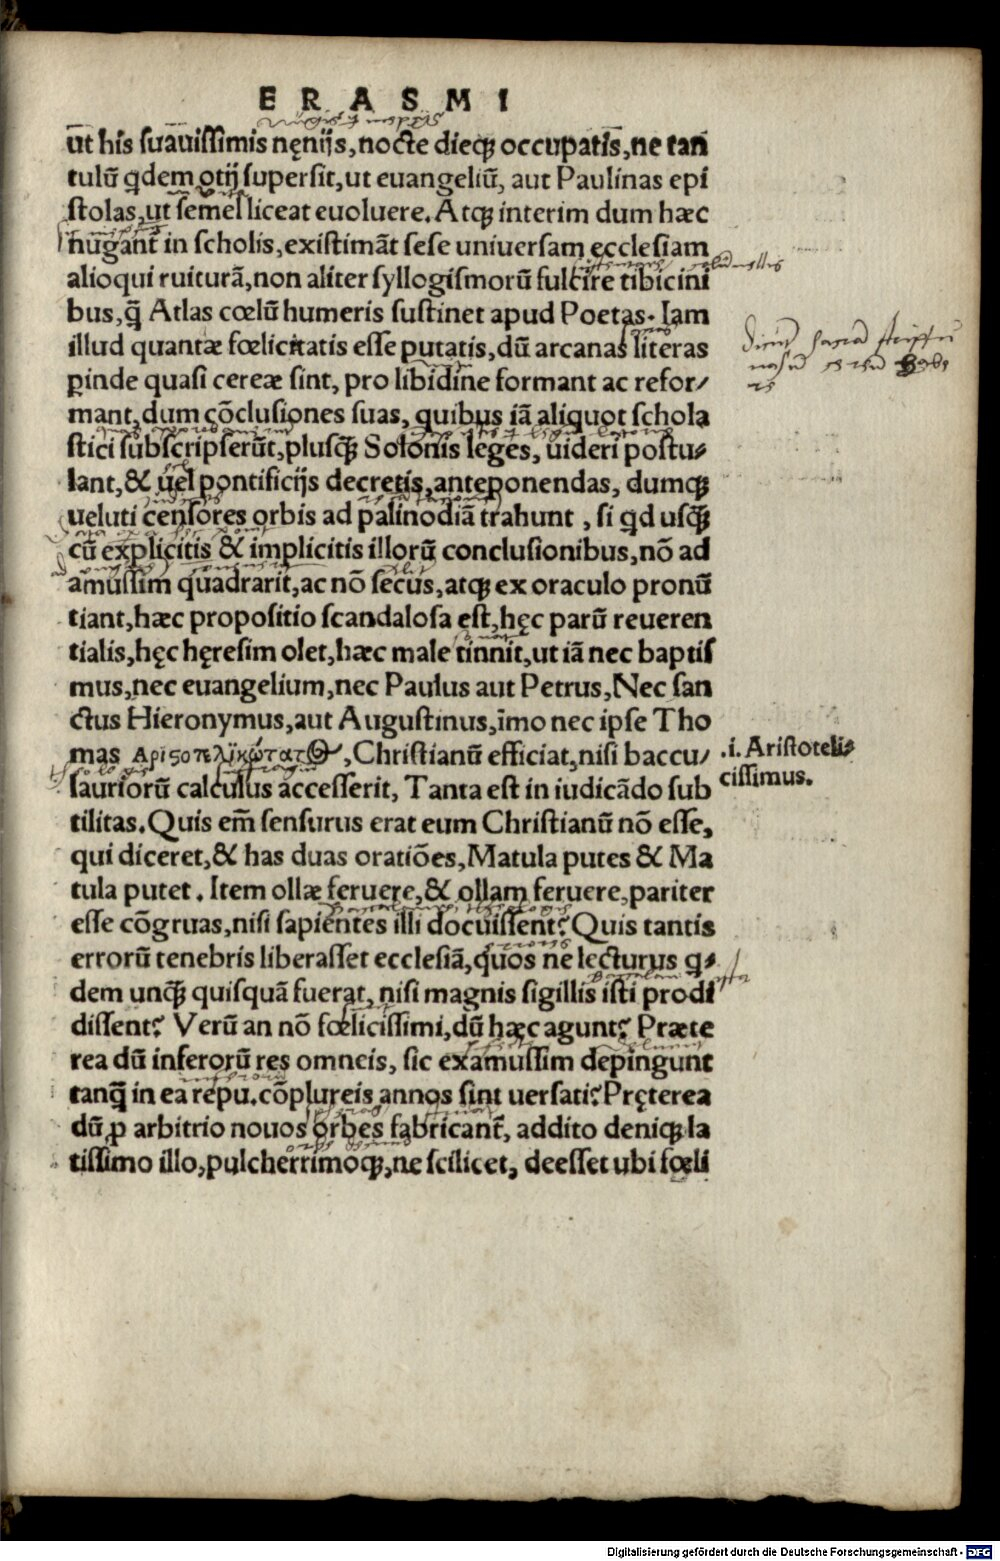 ERASMI
ut his suauissimis nęnijs, nocte dieqꝫ occupatis, ne tan
tulū qdem otij supersit, ut euangeliū, aut Paulinas epi
stolas, ut semel liceat euoluere. Atqꝫ interim dum hæc
nugant̃ in scholis, existimāt sese uniuersam ecclesiam
alioqui ruiturā, non aliter syllogismorū fulcire tibicini
bus, q̃ Atlas cœlū humeris sustinet apud Poetas. Iam
illud quantæ fœlicitatis esse putatis, dū arcanas literas
ꝑinde quasi cereæ sint, pro libidine formant ac refor/
mant, dum cōclusiones suas, quibus iā aliquot schola
stici subscripserūt, plusqꝫ Solonis leges, uideri postu/
lant, & uel pontificijs decretis, anteponendas, dumqꝫ
ueluti censores orbis ad palinodiā trahunt, si qd usqꝫ
cū explicitis & implicitis illorū conclusionibus, nō ad
amussim quadrarit, ac nō secus, atqꝫ ex oraculo pronū
tiant, hæc propositio scandalosa est, hęc parū reueren
tialis, hęc hęresim olet, hæc male tinnit, ut iā nec baptis
mus, nec euangelium, nec Paulus aut Petrus, Nec san
ctus Hieronymus, aut Augustinus, īmo nec ipse Tho
mas Ἀριϛοτελικώτατος, Christianū efficiat, nisi baccu/
.i. Aristoteli/
cissimus.
sauriorū calculus accesserit, Tanta est in iudicādo sub
tilitas. Quis em̃ sensurus erat eum Christianū nō esse,
qui diceret, & has duas oratiōes, Matula putes & Ma
tula putet. Item ollæ feruere, & ollam feruere, pariter
esse cōgruas, nisi sapientes illi docuissent? Quis tantis
errorū tenebris liberasset ecclesiā, quos ne lecturus q/
dem unqꝫ quisquā fuerat, nisi magnis sigillis isti prodi
dissent? Verū an nō fœlicissimi, dū hæc agunt? Præte
rea dū inferorū res omneis, sic examussim depingunt
tanq̃ in ea repu. cōplureis annos sint uersati? Pręterea
dū ꝓ arbitrio nouos orbes fabricant̃, addito deniqꝫ la
tissimo illo, pulcherrimoqꝫ, ne scilicet, deesset ubi fœli
Digitalisierung gefördert durch die Deutsche Forschungsgemeinschaft - DFG